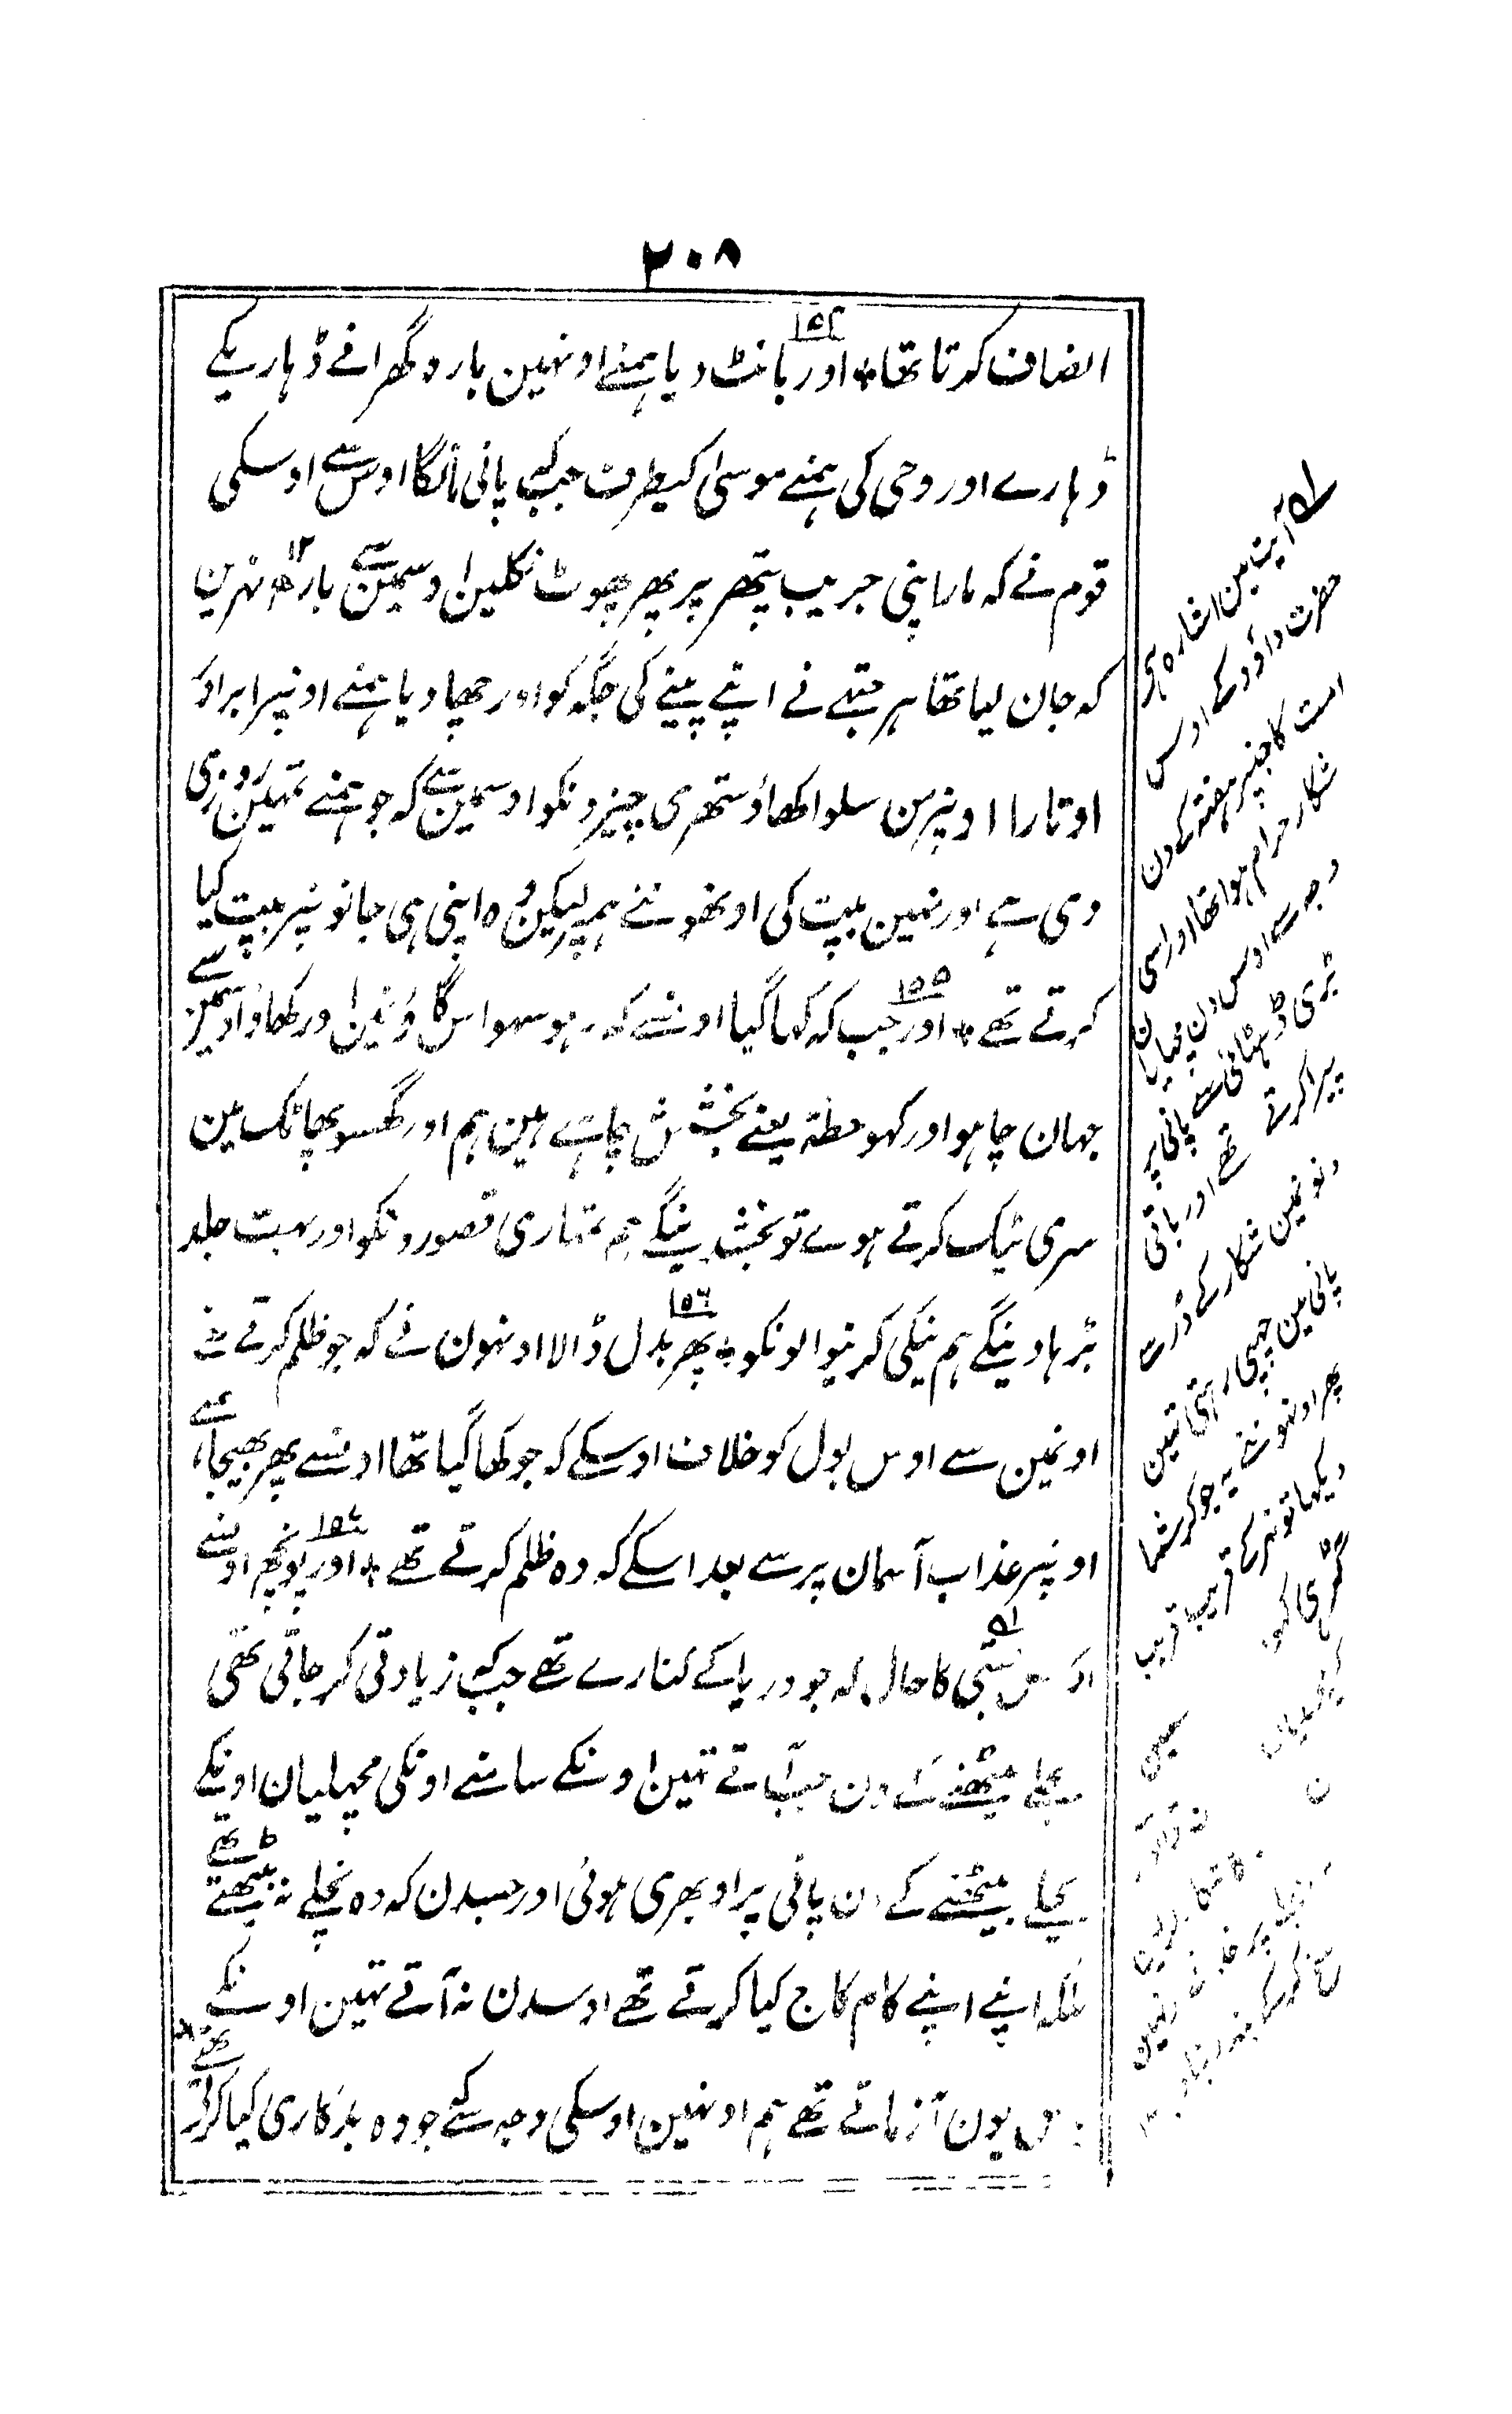 ۲۰۸
انصاف کرتا تھا * اور بانٹ دیا ہمنے اونہین بارہ گھرانے ڈہاریکے
ڈہارے اور وحی کی ہمنے موسیٰ کیطرف جبکہ پانی مانگا اوس سے اوسکی
قوم نے کہ مار اپنی جریب پتھر پر پھر پھوٹ نکلین اوسمین سے بارہ ۱۲ نہرین
کہ جان لیا تھا ہر جتھے نے اپنے پینے کی جگہ کو اور چھا دیا ہمنے اونپر ابر اور
اوتارا اونپر من سلوا کھاؤ ستھری چیزونکو اوسمین سے کہ جو ہمنے تمہین روزی
دی ہے اور نہین بپت کی اونھوننے ہمپر لیکن وہ اپنی ہی جانونپر بپت کیا
کرتے تھے * ۱۵۵ اور جب کہ کہا گیا اونسے کہ رہو سہو اس گاؤنمین اور کھاؤ اوسمین سے
جہان چاہو اور کہو حطۃ یعنے بخشش چاہتے ہین ہم اور گھسو پھاٹک مین
سری ٹیک کرتے ہوے تو بخشدینگے ہم تمہاری قصورونکو اور بہت جلد
بڑہا دینگے ہم نیکی کرنیوالونکو * ۱۵۶ پھر بدل ڈالا اونہون نے کہ جو ظلم کرتے تھے
اونمین سے اوس بول کو خلاف اوسکے کہ جو کہا گیا تھا اونسے پھر بھیجا ہمنے
اونپر عذاب آسمان پر سے بعد اسکے کہ وہ ظلم کرتے تھے * اور پونچھ اونسے
اوس بستی کا حال کہ جو دریا کے کنارے تھے جبکہ زیادتی کر جاتی تھی
نچلے بیٹھنے کے دن جب آتے تہین اونکے سامنے اونکی مچھلیان اونکے
نچلے بیٹھنے کے دن پانی پر اوبھری ہوئی اور جسدن کہ وہ نچلے نہ بیٹھتے تھے
بلکہ اپنے اپنے کام کاج کیا کرتے تھے اوسدن نہ آتے تہین اونکے
یون آزماتے تھے ہم اونہین اوسکی وجہ سے کہ جو وہ بدکاری کیا کرتے تھے
آیت مین اشارہ ہے
حضرت داؤد کے اوس
امت کا جنپر ہفتہ کے دن
شکار حرام ہوا تھا اور اسی
وجہ سے اوس دن مچھلیان
بڑی ڈھٹائی سے پانی پر
پیرا کرتے تھے اور باقی
دنونمین شکار کے ڈر سے
پانی مین چھپی رہتی تہین
پھر اونہوننے یہ جو کرشما
دیکھا تو نہر کے قریب قریب